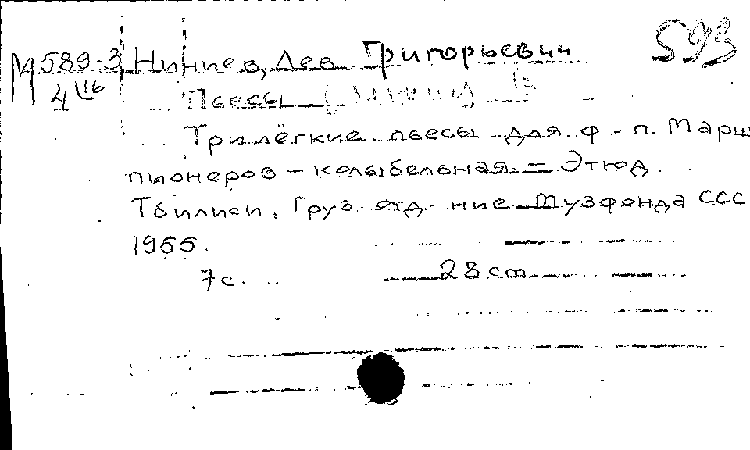 М589.3 Ниниев, Лев Григорьевич 593
4
Пьесы
Три лёгкие пьесы для ф-п. Марш
пионеров - колыбельная. = Этюд.
Тбилиси, Груз. отд-ние Музфонда ССС
1955.
7с. 28 cm